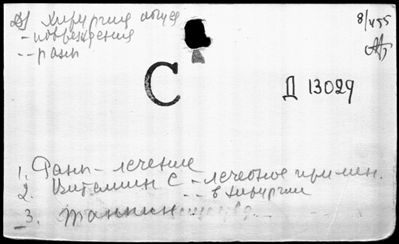 Д) Хирургия общая
- повреждения
-- раны
8/V55
С
Д 13029
1. Раны - лечение
2. Витамин С - лечебное примен.
-- в хирургии
3. Таннин